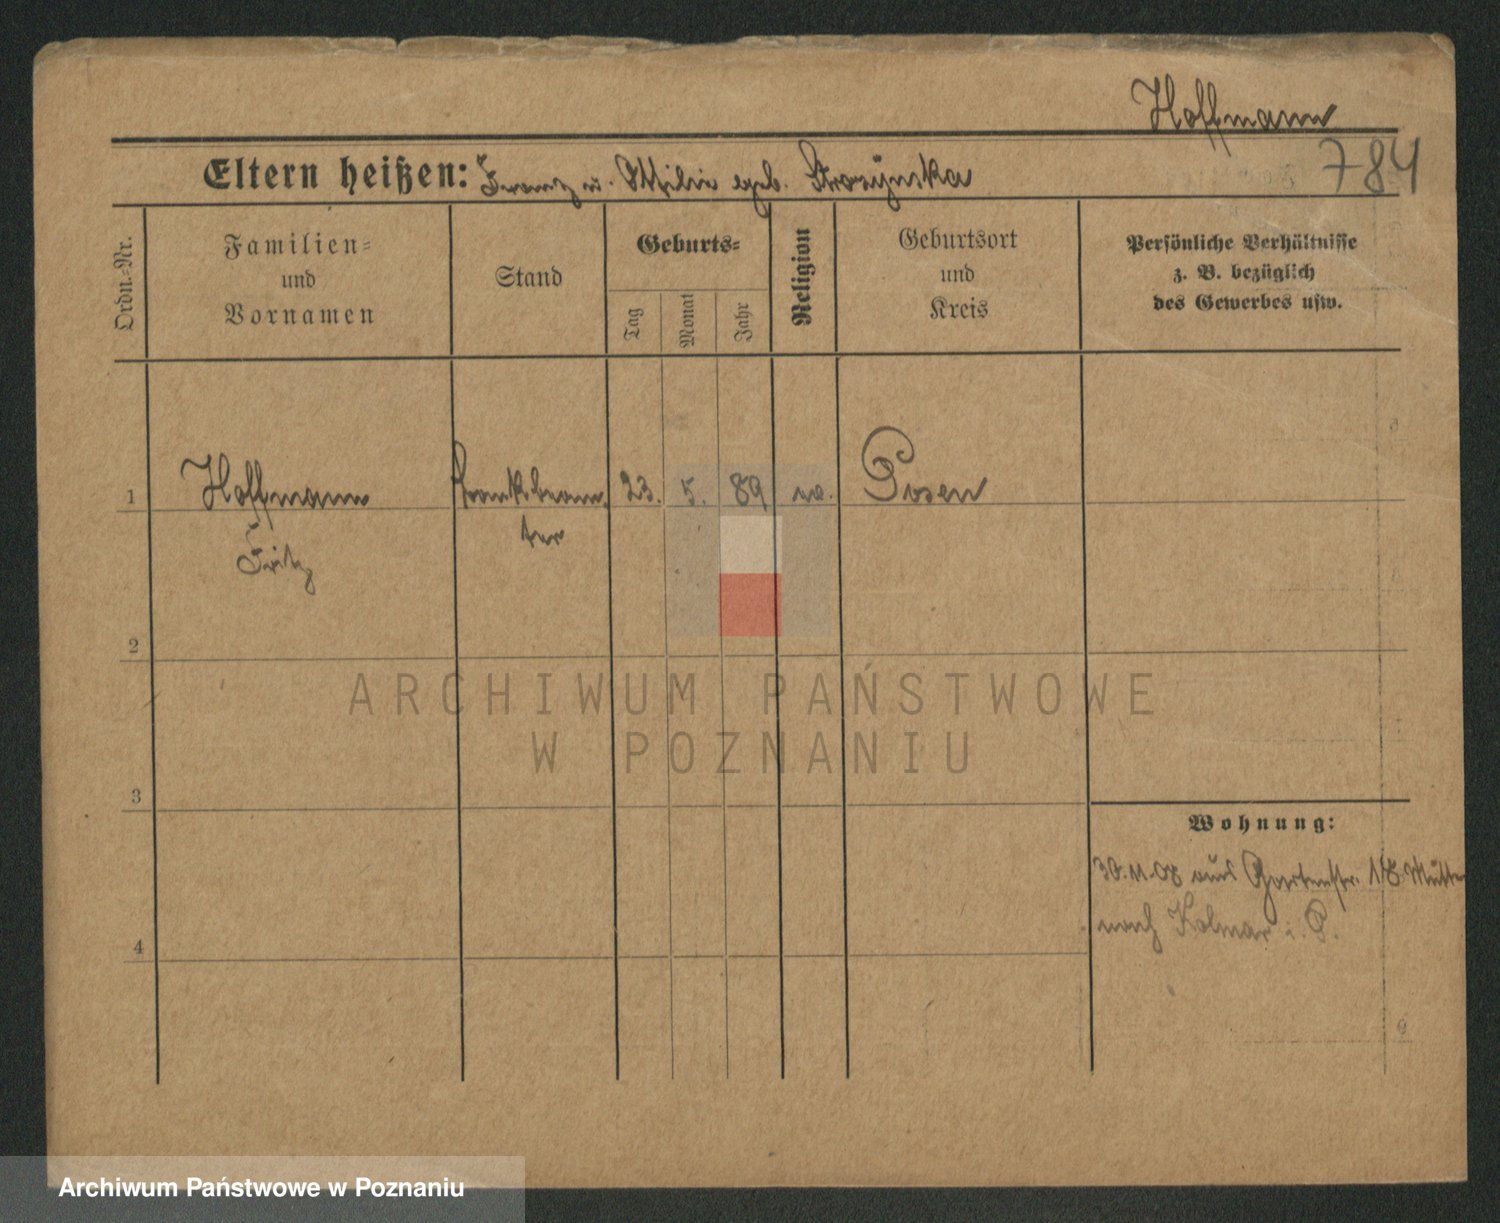 Hoffmann
784
Eltern heißen: Franz u. Ottilie geb.
Ordn.-Nr.
Familien-
und
Vornamen
Stand
Geburts-
Tag
Monat
Jahr
Religion
Geburtsort
und
Kreis
Persönliche Verhältnisse
z. B. bezüglich
des Gewerbes usw.
1
Hoffmann
23. 5. 89
Posen
Fritz
2
ARCHIWUM PAŃSTWOWE
W POZNANIU
3
Wohnung:
30.11.08 aus Gartenstr. 18
4
nach Kolmar i. P.
Archiwum Państwowe w Poznaniu